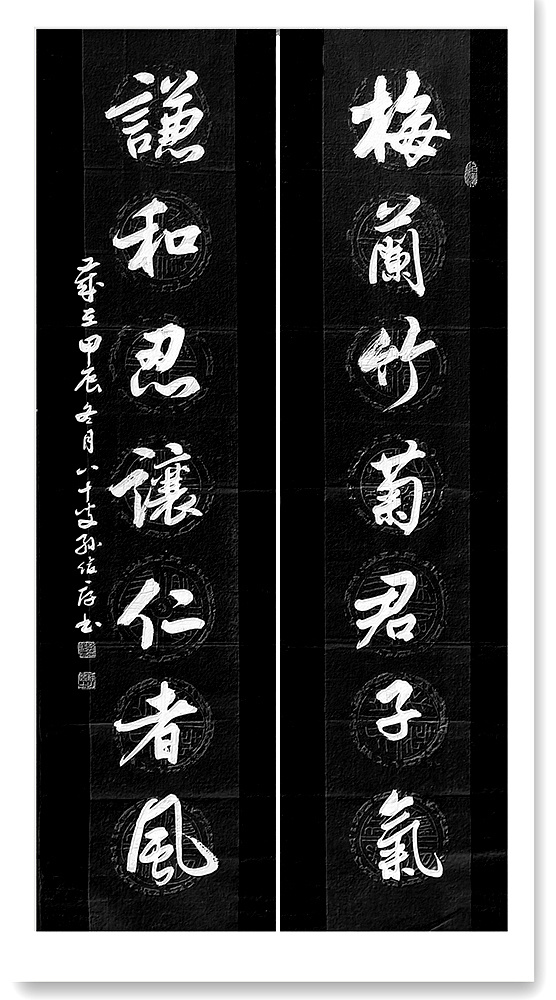 梅蘭竹菊君子氣
謙和忍讓仁者風
歲在甲辰冬月八十叟孫信存书